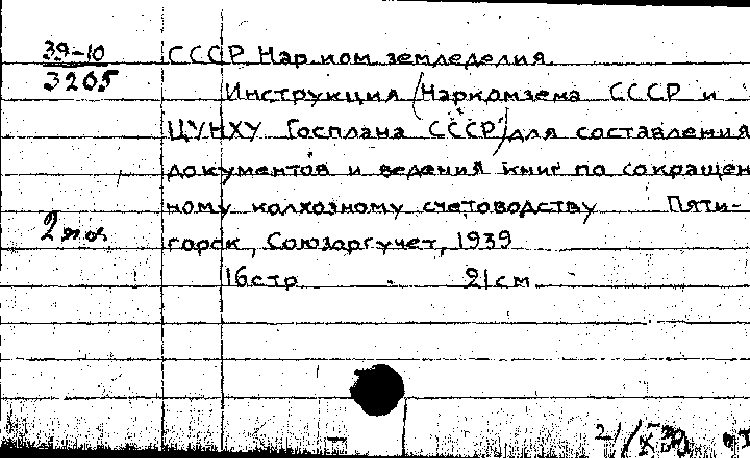 39-10
3205
СССР Нар.ком земледелия.
Инструкция (Наркомзема СССР и
ЦУНХУ Госплана СССР) для составления
документов и ведения книг по сокращен
ному колхозному счетоводству Пяти-
горск, Союзоргучет, 1939
2 экз.
16стр. 21см.